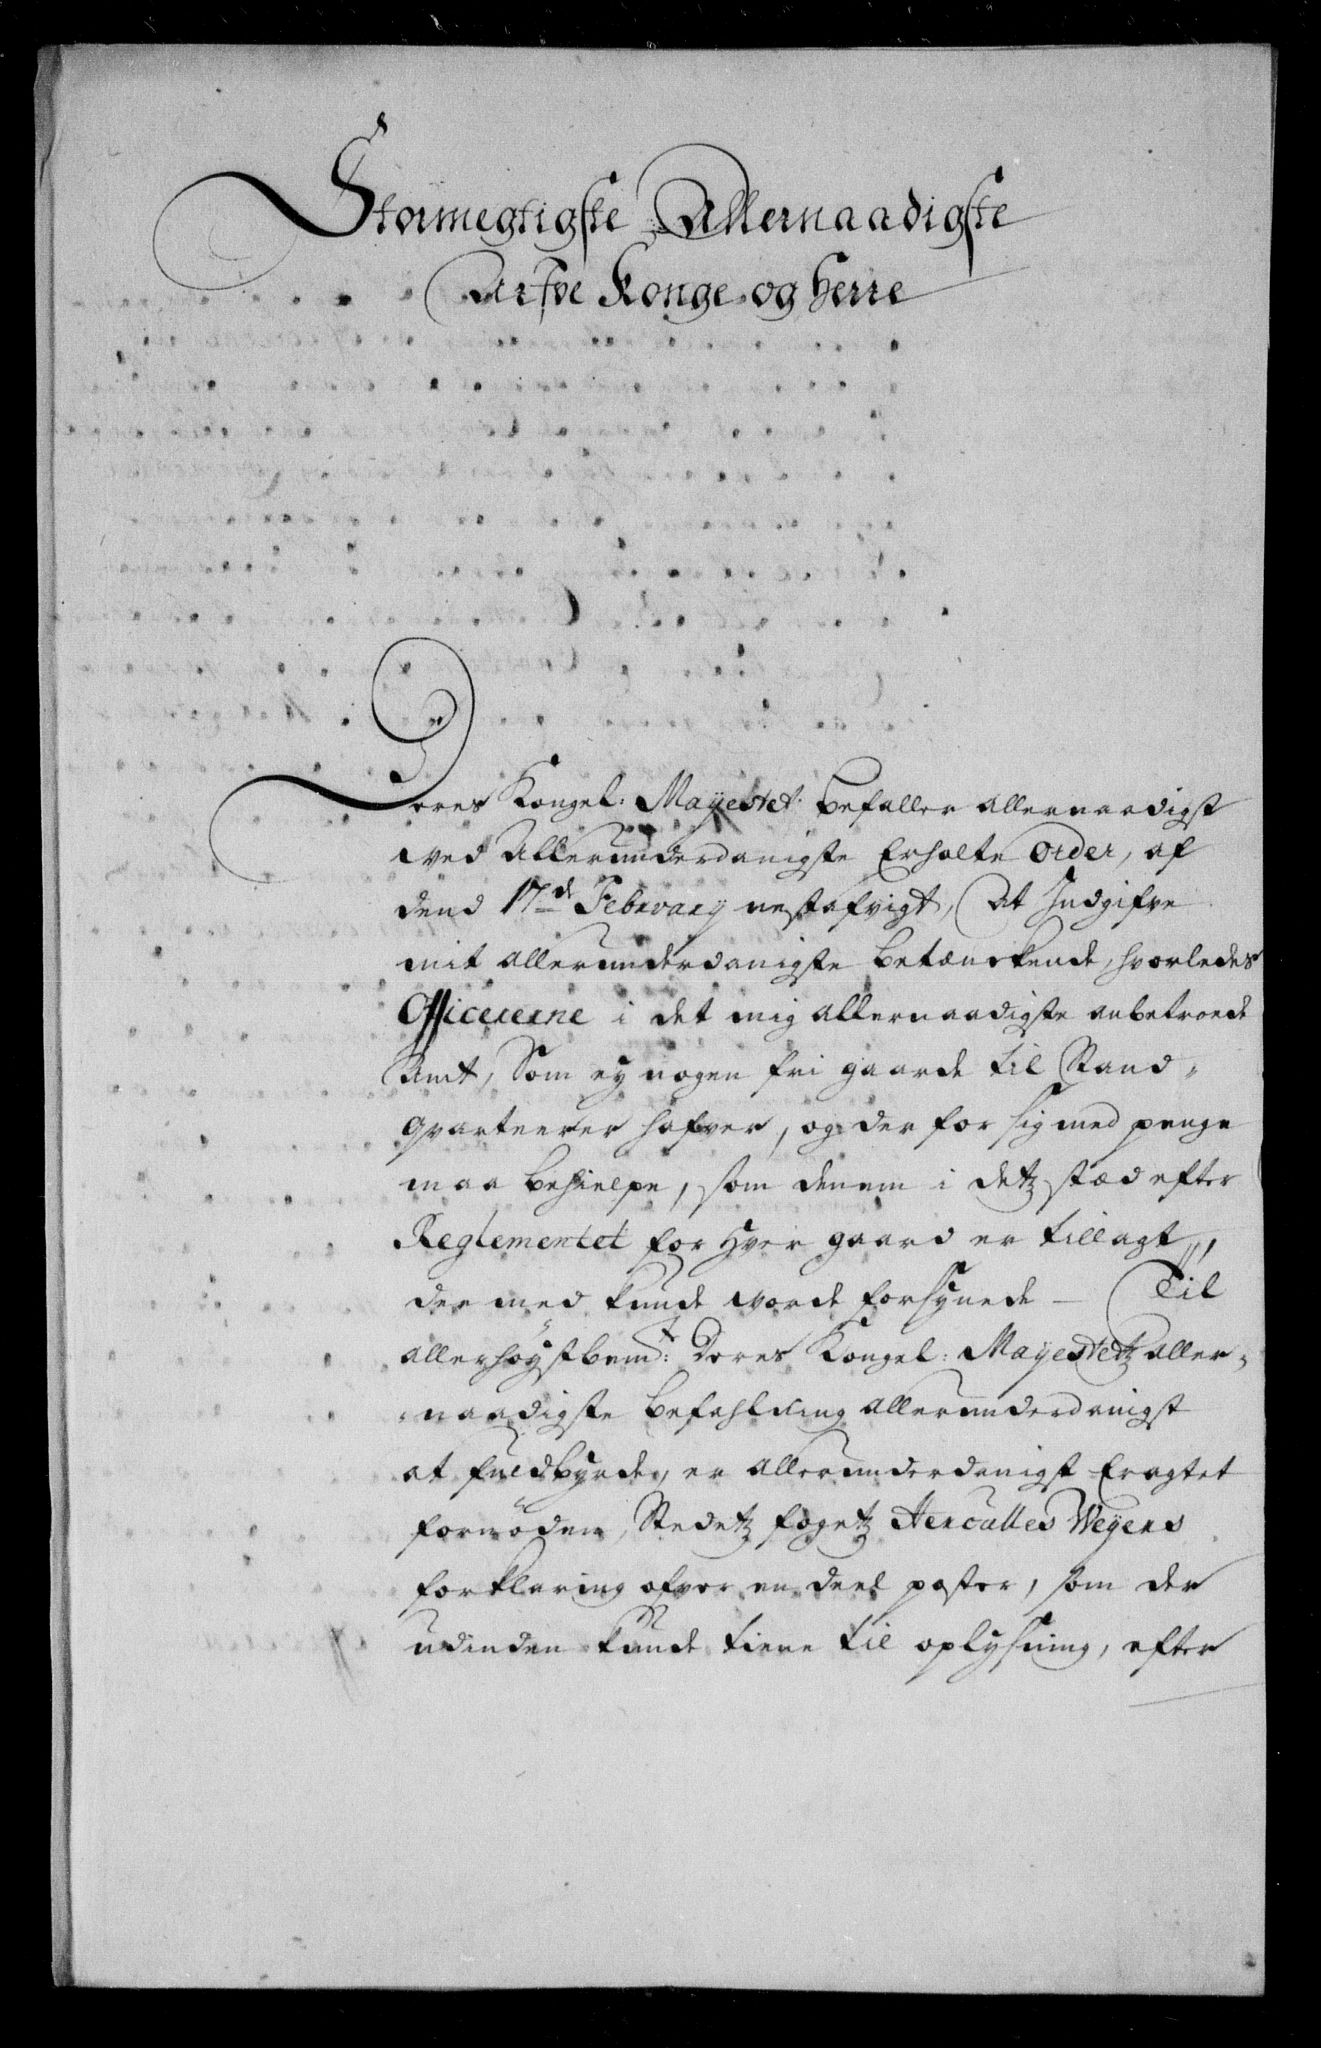 Stormegtigste Allernaadigste
Arfve Konge og Herre
Deres Kongel: Mayestet befaller allernaadigst
ved Allerunderdanigste Erholte Order, af
dend 17de February nestafvigt, At Indgifve
mit allerunderdanigste betænckende, hvorledes
Officererne i det mig allernaadigste anbetroede
Amt, Som ey nogen fri gaarde til Stand-
qvarteerer hafver, og der for sig med penge
maa behielpe, som denem i detz stæd efter
Reglementet for Hver gaard er tillagt,
der med kunde vorde forsynede - Til
allerhøystbemt: Deres Kongel: Mayestetz aller-
naadigste befahlning allerunderdanigst
at fuldbyrde, er allerunderdanigst Eragtet
fornøden, Stedetz fogetz Hercules Weyers
forklaring ofver en deel poster, som der
udinden kunde tiene til oplysning, efter